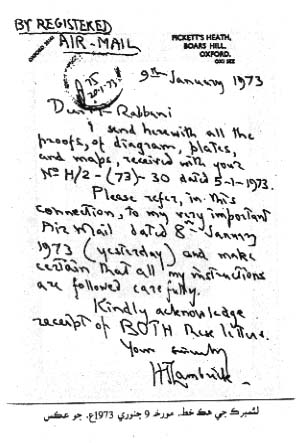 BY REGISTERED
AIR-MAIL
PICKETT'S HEATH,
BOARS HILL,
OXFORD.
OX1 5EZ
9th January 1973
Dear Mr Rabbani
I send herewith all the
proofs, of diagram, plates,
and maps, received with your
No H/2-(73)-30 dated 5-1-1973.
Please refer, in this
connection, to my very important
Air Mail dated 8th January
1973 (yesterday) and make
certain that all my instructions
are followed carefully.
Kindly acknowledge
receipt of BOTH these letters.
Yours sincerely
H T Lambrick
لئمبرڪ جي هڪ خط، مورخہ 9 جنوري 1973ع. جو عڪس